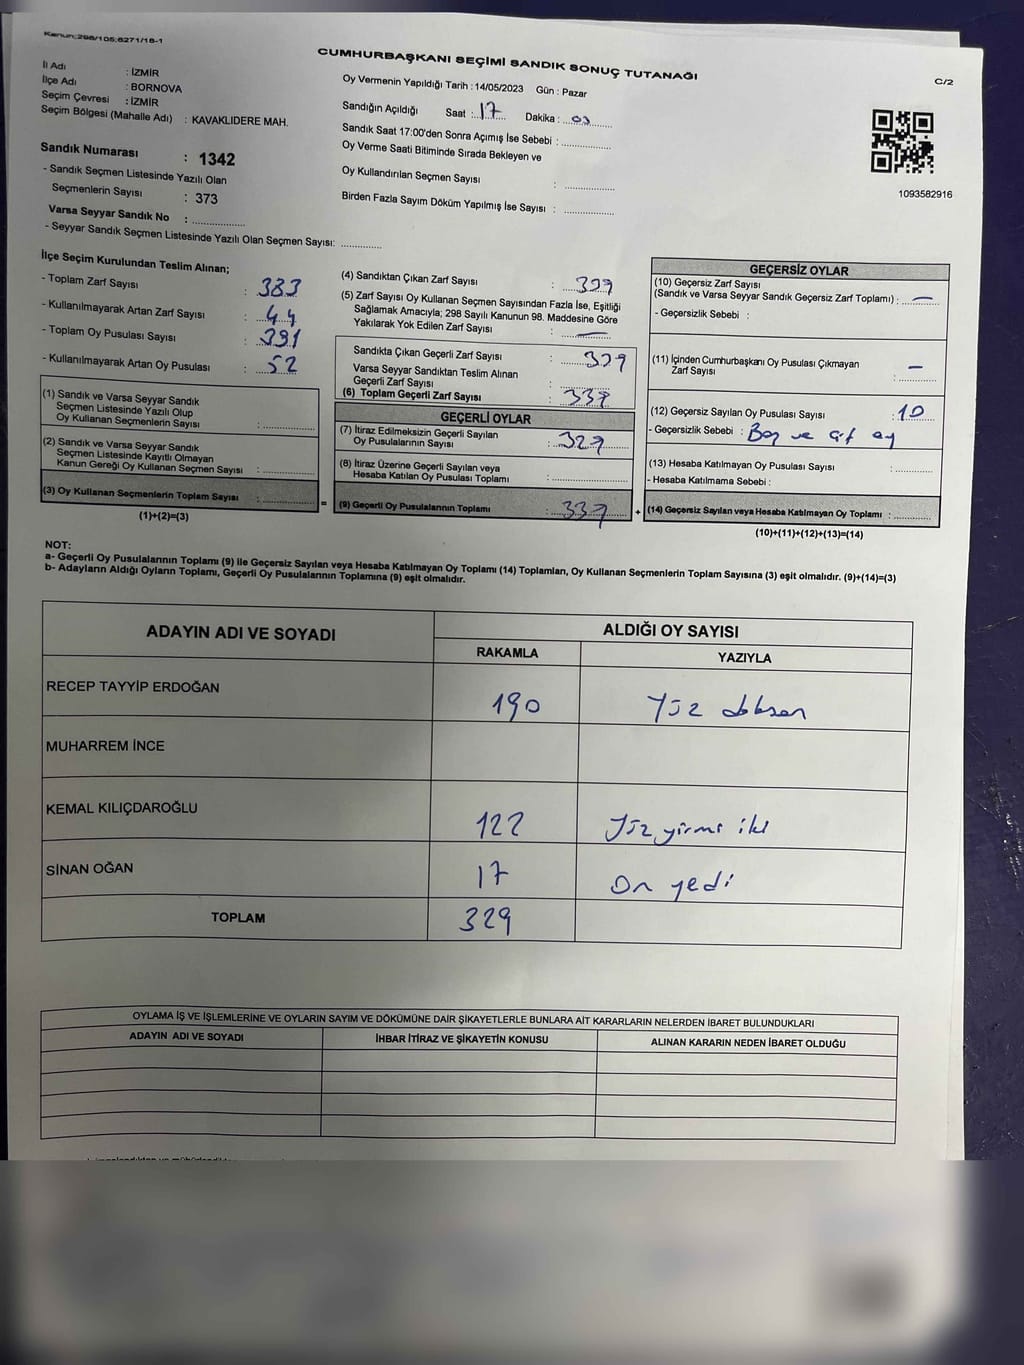 Kanun:298/105;6271/18-1
CUMHURBAŞKANI SEÇİMİ SANDIK SONUÇ TUTANAĞI
C/2
İl Adı : İZMİR
İlçe Adı : BORNOVA
Seçim Çevresi : İZMİR
Seçim Bölgesi (Mahalle Adı) : KAVAKLIDERE MAH.
Sandık Numarası : 1342
- Sandık Seçmen Listesinde Yazılı Olan
Seçmenlerin Sayısı : 373
Varsa Seyyar Sandık No : ................
- Seyyar Sandık Seçmen Listesinde Yazılı Olan Seçmen Sayısı: ............
Oy Vermenin Yapıldığı Tarih : 14/05/2023 Gün : Pazar
Sandığın Açıldığı Saat : 17 Dakika :
Sandık Saat 17:00'den Sonra Açımış İse Sebebi : ...............
Oy Verme Saati Bitiminde Sırada Bekleyen ve
Oy Kullandırılan Seçmen Sayısı : ...............
Birden Fazla Sayım Döküm Yapılmış İse Sayısı : ...............
1093582916
İlçe Seçim Kurulundan Teslim Alınan;
- Toplam Zarf Sayısı : 383
- Kullanılmayarak Artan Zarf Sayısı : 44
- Toplam Oy Pusulası Sayısı : 391
- Kullanılmayarak Artan Oy Pusulası : 52
(1) Sandık ve Varsa Seyyar Sandık
Seçmen Listesinde Yazılı Olup
Oy Kullanan Seçmenlerin Sayısı : ...............
(2) Sandık ve Varsa Seyyar Sandık
Seçmen Listesinde Kayıtlı Olmayan
Kanun Gereği Oy Kullanan Seçmen Sayısı : ...............
(3) Oy Kullanan Seçmenlerin Toplam Sayısı : ...............
(1)+(2)=(3)
(4) Sandıktan Çıkan Zarf Sayısı : 339
(5) Zarf Sayısı Oy Kullanan Seçmen Sayısından Fazla İse, Eşitliği
Sağlamak Amacıyla; 298 Sayılı Kanunun 98. Maddesine Göre
Yakılarak Yok Edilen Zarf Sayısı : —
Sandıkta Çıkan Geçerli Zarf Sayısı : 339
Varsa Seyyar Sandıktan Teslim Alınan
Geçerli Zarf Sayısı : ...............
(6) Toplam Geçerli Zarf Sayısı : 339
GEÇERLİ OYLAR
(7) İtiraz Edilmeksizin Geçerli Sayılan
Oy Pusulalarının Sayısı : 329
(8) İtiraz Üzerine Geçerli Sayılan veya
Hesaba Katılan Oy Pusulası Toplamı : ...............
(9) Geçerli Oy Pusulalarının Toplamı : 339
=
+
GEÇERSİZ OYLAR
(10) Geçersiz Zarf Sayısı
(Sandık ve Varsa Seyyar Sandık Geçersiz Zarf Toplamı) : —
- Geçersizlik Sebebi :
(11) İçinden Cumhurbaşkanı Oy Pusulası Çıkmayan
Zarf Sayısı : —
(12) Geçersiz Sayılan Oy Pusulası Sayısı : 10
- Geçersizlik Sebebi : Boş ve çift oy
(13) Hesaba Katılmayan Oy Pusulası Sayısı : ............
- Hesaba Katılmama Sebebi :
(14) Geçersiz Sayılan veya Hesaba Katılmayan Oy Toplamı : ............
(10)+(11)+(12)+(13)=(14)
NOT:
a- Geçerli Oy Pusulalarının Toplamı (9) ile Geçersiz Sayılan veya Hesaba Katılmayan Oy Toplamı (14) Toplamları, Oy Kullanan Seçmenlerin Toplam Sayısına (3) eşit olmalıdır. (9)+(14)=(3)
b- Adayların Aldığı Oyların Toplamı, Geçerli Oy Pusulalarının Toplamına (9) eşit olmalıdır.
ADAYIN ADI VE SOYADI
ALDIĞI OY SAYISI
RAKAMLA
YAZIYLA
RECEP TAYYİP ERDOĞAN 190 Yüz doksan
MUHARREM İNCE
KEMAL KILIÇDAROĞLU 122 Yüz yirmi iki
SİNAN OĞAN 17 On yedi
TOPLAM 329
OYLAMA İŞ VE İŞLEMLERİNE VE OYLARIN SAYIM VE DÖKÜMÜNE DAİR ŞİKAYETLERLE BUNLARA AİT KARARLARIN NELERDEN İBARET BULUNDUKLARI
ADAYIN ADI VE SOYADI
İHBAR İTİRAZ VE ŞİKAYETİN KONUSU
ALINAN KARARIN NEDEN İBARET OLDUĞU